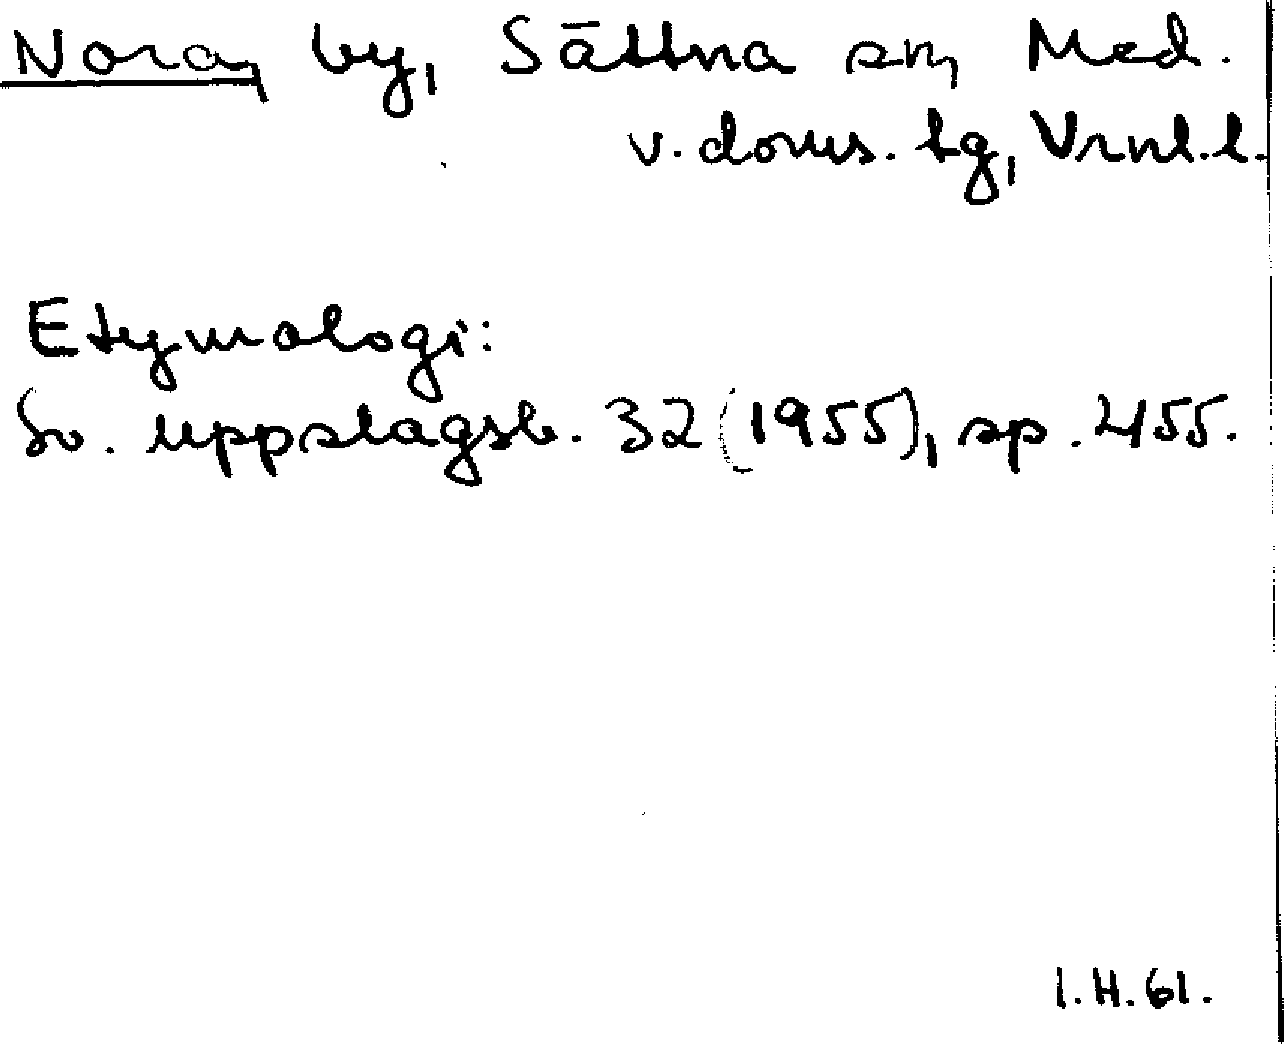 Nora, by, Sättna sn, Med.
v. doms. tg, Vrnl. l.
Etymologi:
Sv. uppslagsb. 32 (1955), sp. 455.
I.H. 61.